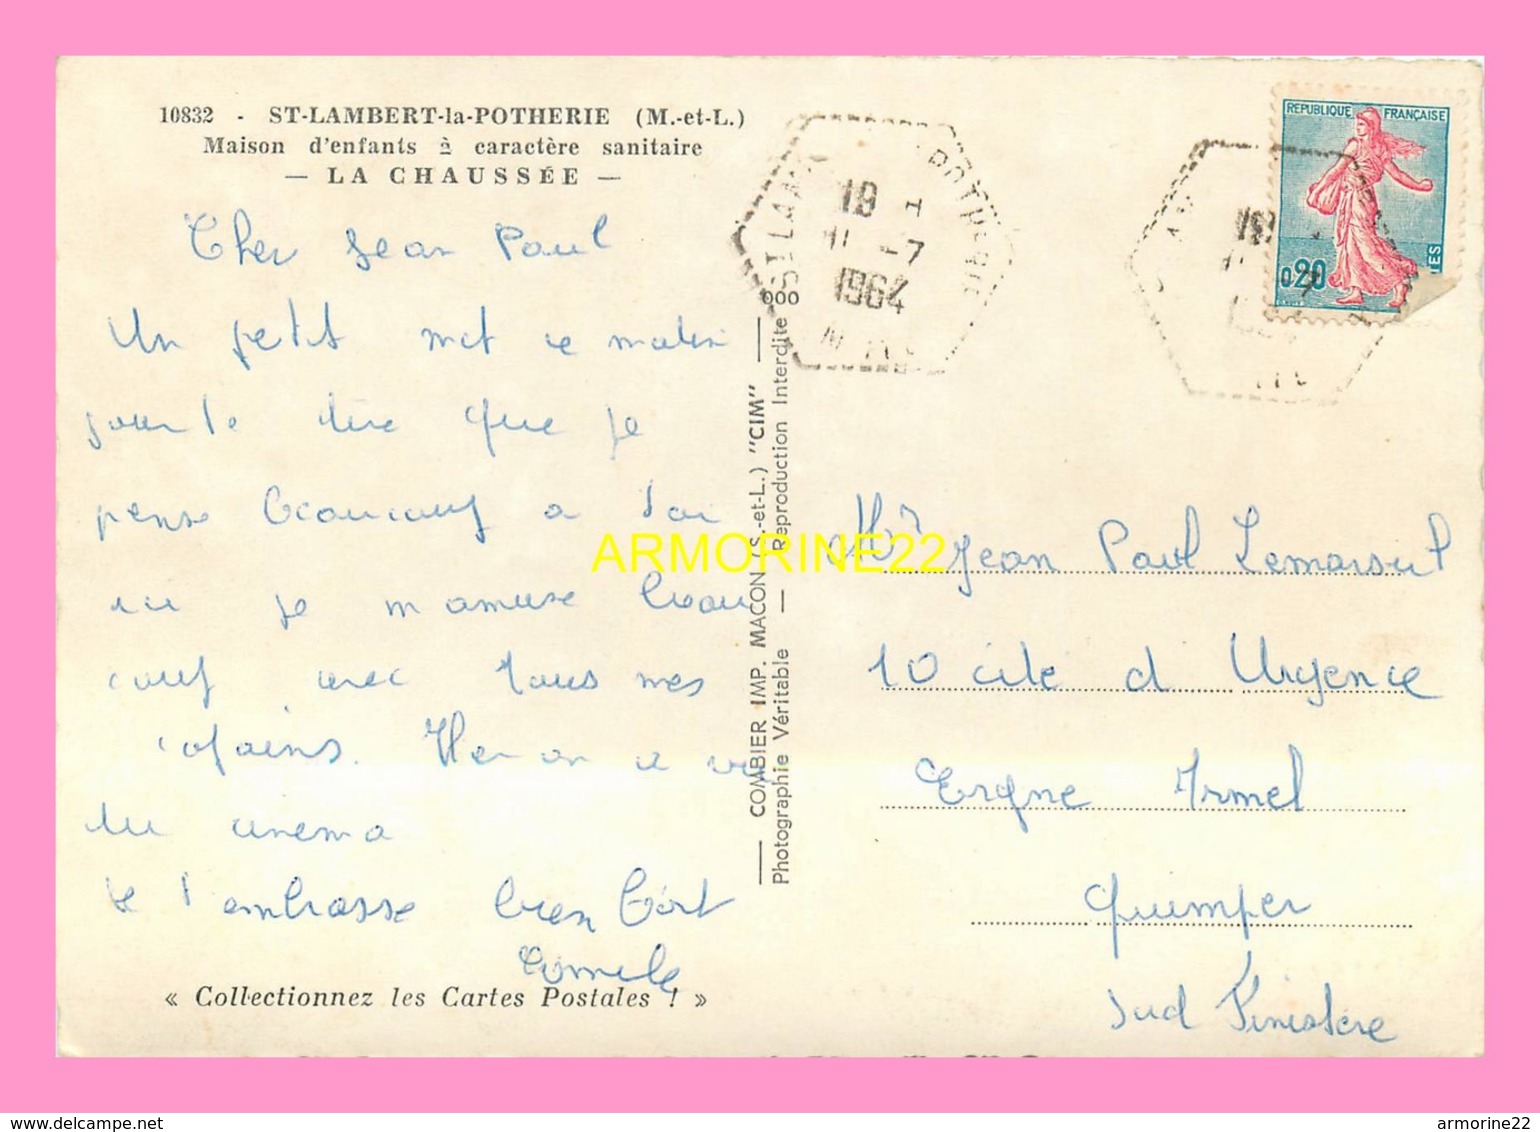 10832 - ST-LAMBERT-la-POTHERIE (M.-et-L.)
Maison d'enfants à caractère sanitaire
— LA CHAUSSÉE —
Cher Jean Paul
Un petit mot ce matin
pour te dire que je
pense beaucoup a toi
ici je m amuse beau
coup avec tous mes
copains. Hier on a vu
du cinema
Je t'embrasse bien fort
« Collectionnez les Cartes Postales ! »
COMBIER IMP. MACON (S.-et-L.) "CIM"
Photographie Véritable — Reproduction Interdite
ST LAMB POTHERIE
19 H
11 -7
1964
REPUBLIQUE FRANÇAISE
0,20
TES
ARMORINE22
Mr Jean Paul
10 cite d Urgence
Ergue Armel
Quimper
Sud Finistere
delcampe.net
armorine22